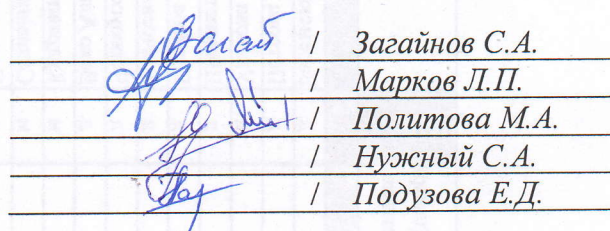 Загай / Загайнов С.А.
/ Марков Л.П.
/ Политова М.А.
/ Нужный С.А.
/ Подузова Е.Д.